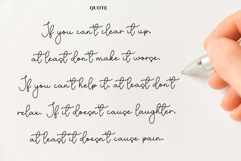 QUOTE
If you can't clear it up,
at least don't make it worse.
If you can't help it, at least don't
relax. If it doesn't cause laughter,
at least it doesn't cause pain.